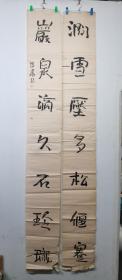 澗雪壓多松偃蹇
巖泉滴久石玲瓏